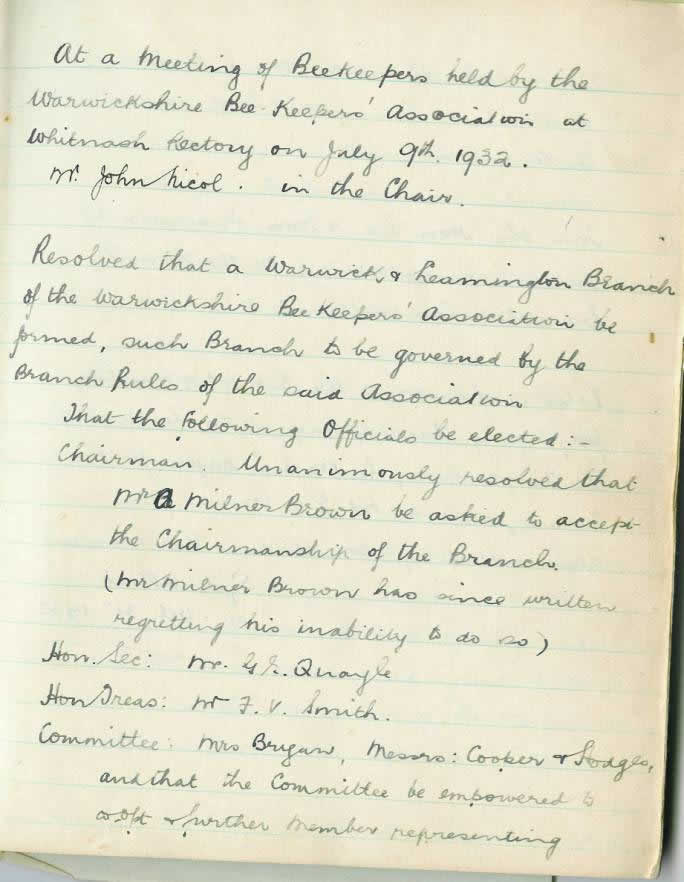 At a Meeting of BeeKeepers held by the
Warwickshire Bee Keepers' Association at
Whitnash Rectory on July 9th. 1932.
Mr. John Nicol. in the Chair.
Resolved that a Warwick & Leamington Branch
of the Warwickshire Bee Keepers' Association be
formed, such Branch to be governed by the
Branch Rules of the said Association
That the Following Officials be elected:-
Chairman. Unanimously resolved that
Mr A Milner Brown be asked to accept
the Chairmanship of the Branch.
(Mr Milner Brown has since written
regretting his inability to do so)
Hon. Sec: Mr. G. Quayle
Hon Treas: Mr F. V. Smith.
Committee: Mrs Messrs: Cooper &
and that the Committee be empowered to
coopt a further Member representing